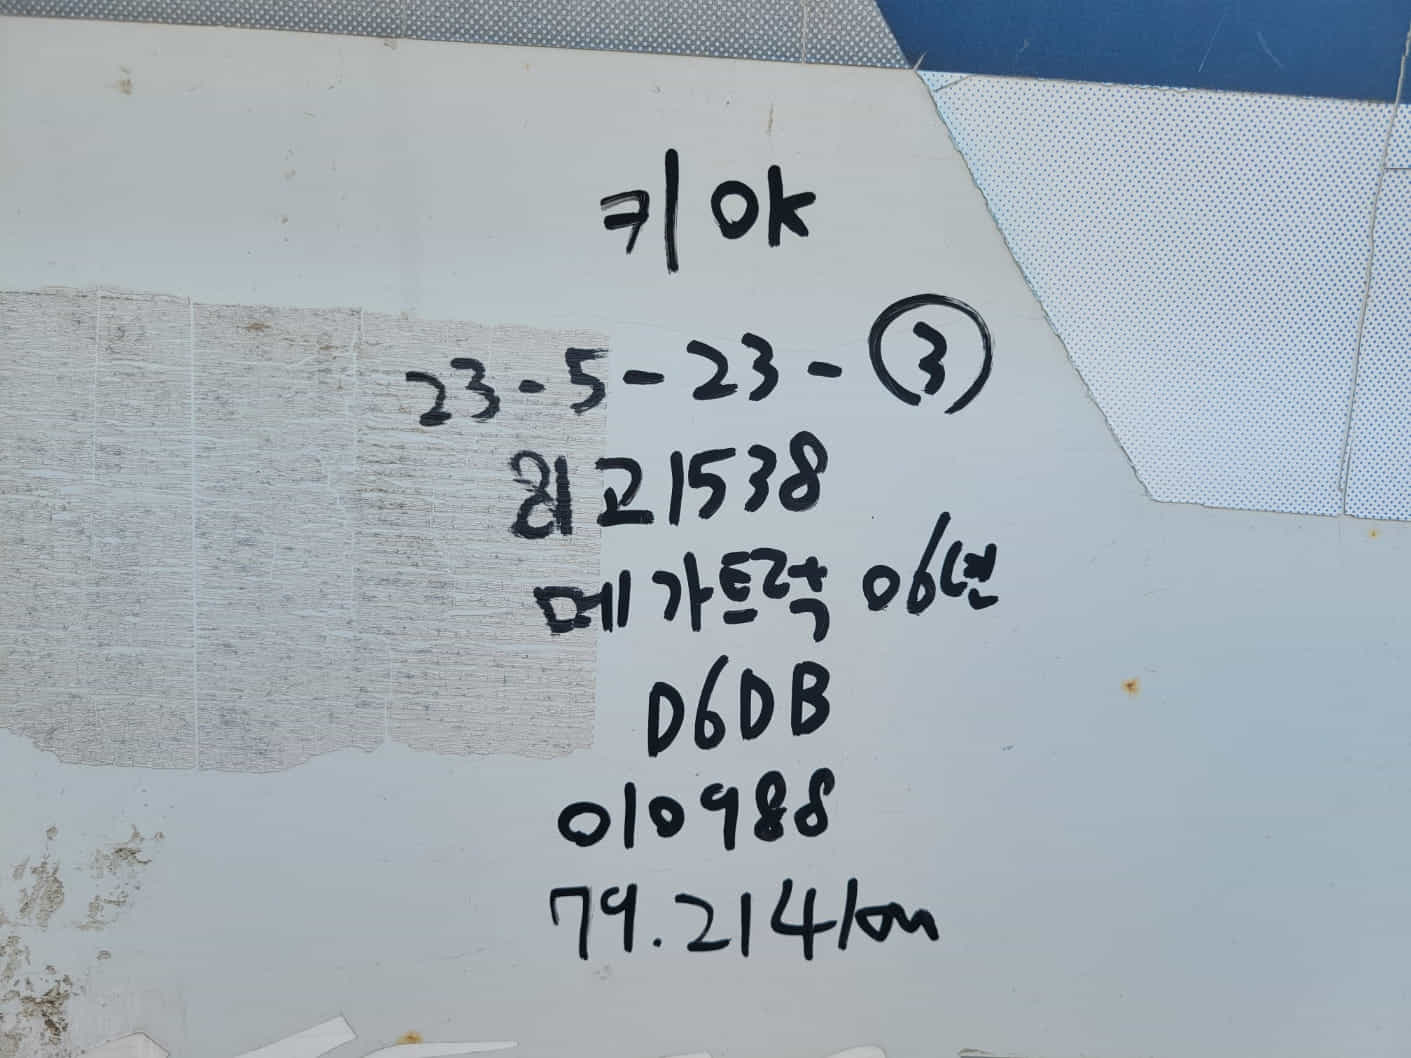 키 ok
23-5-23-③
최고1538
메가트럭 06년
D6DB
010988
79.214km